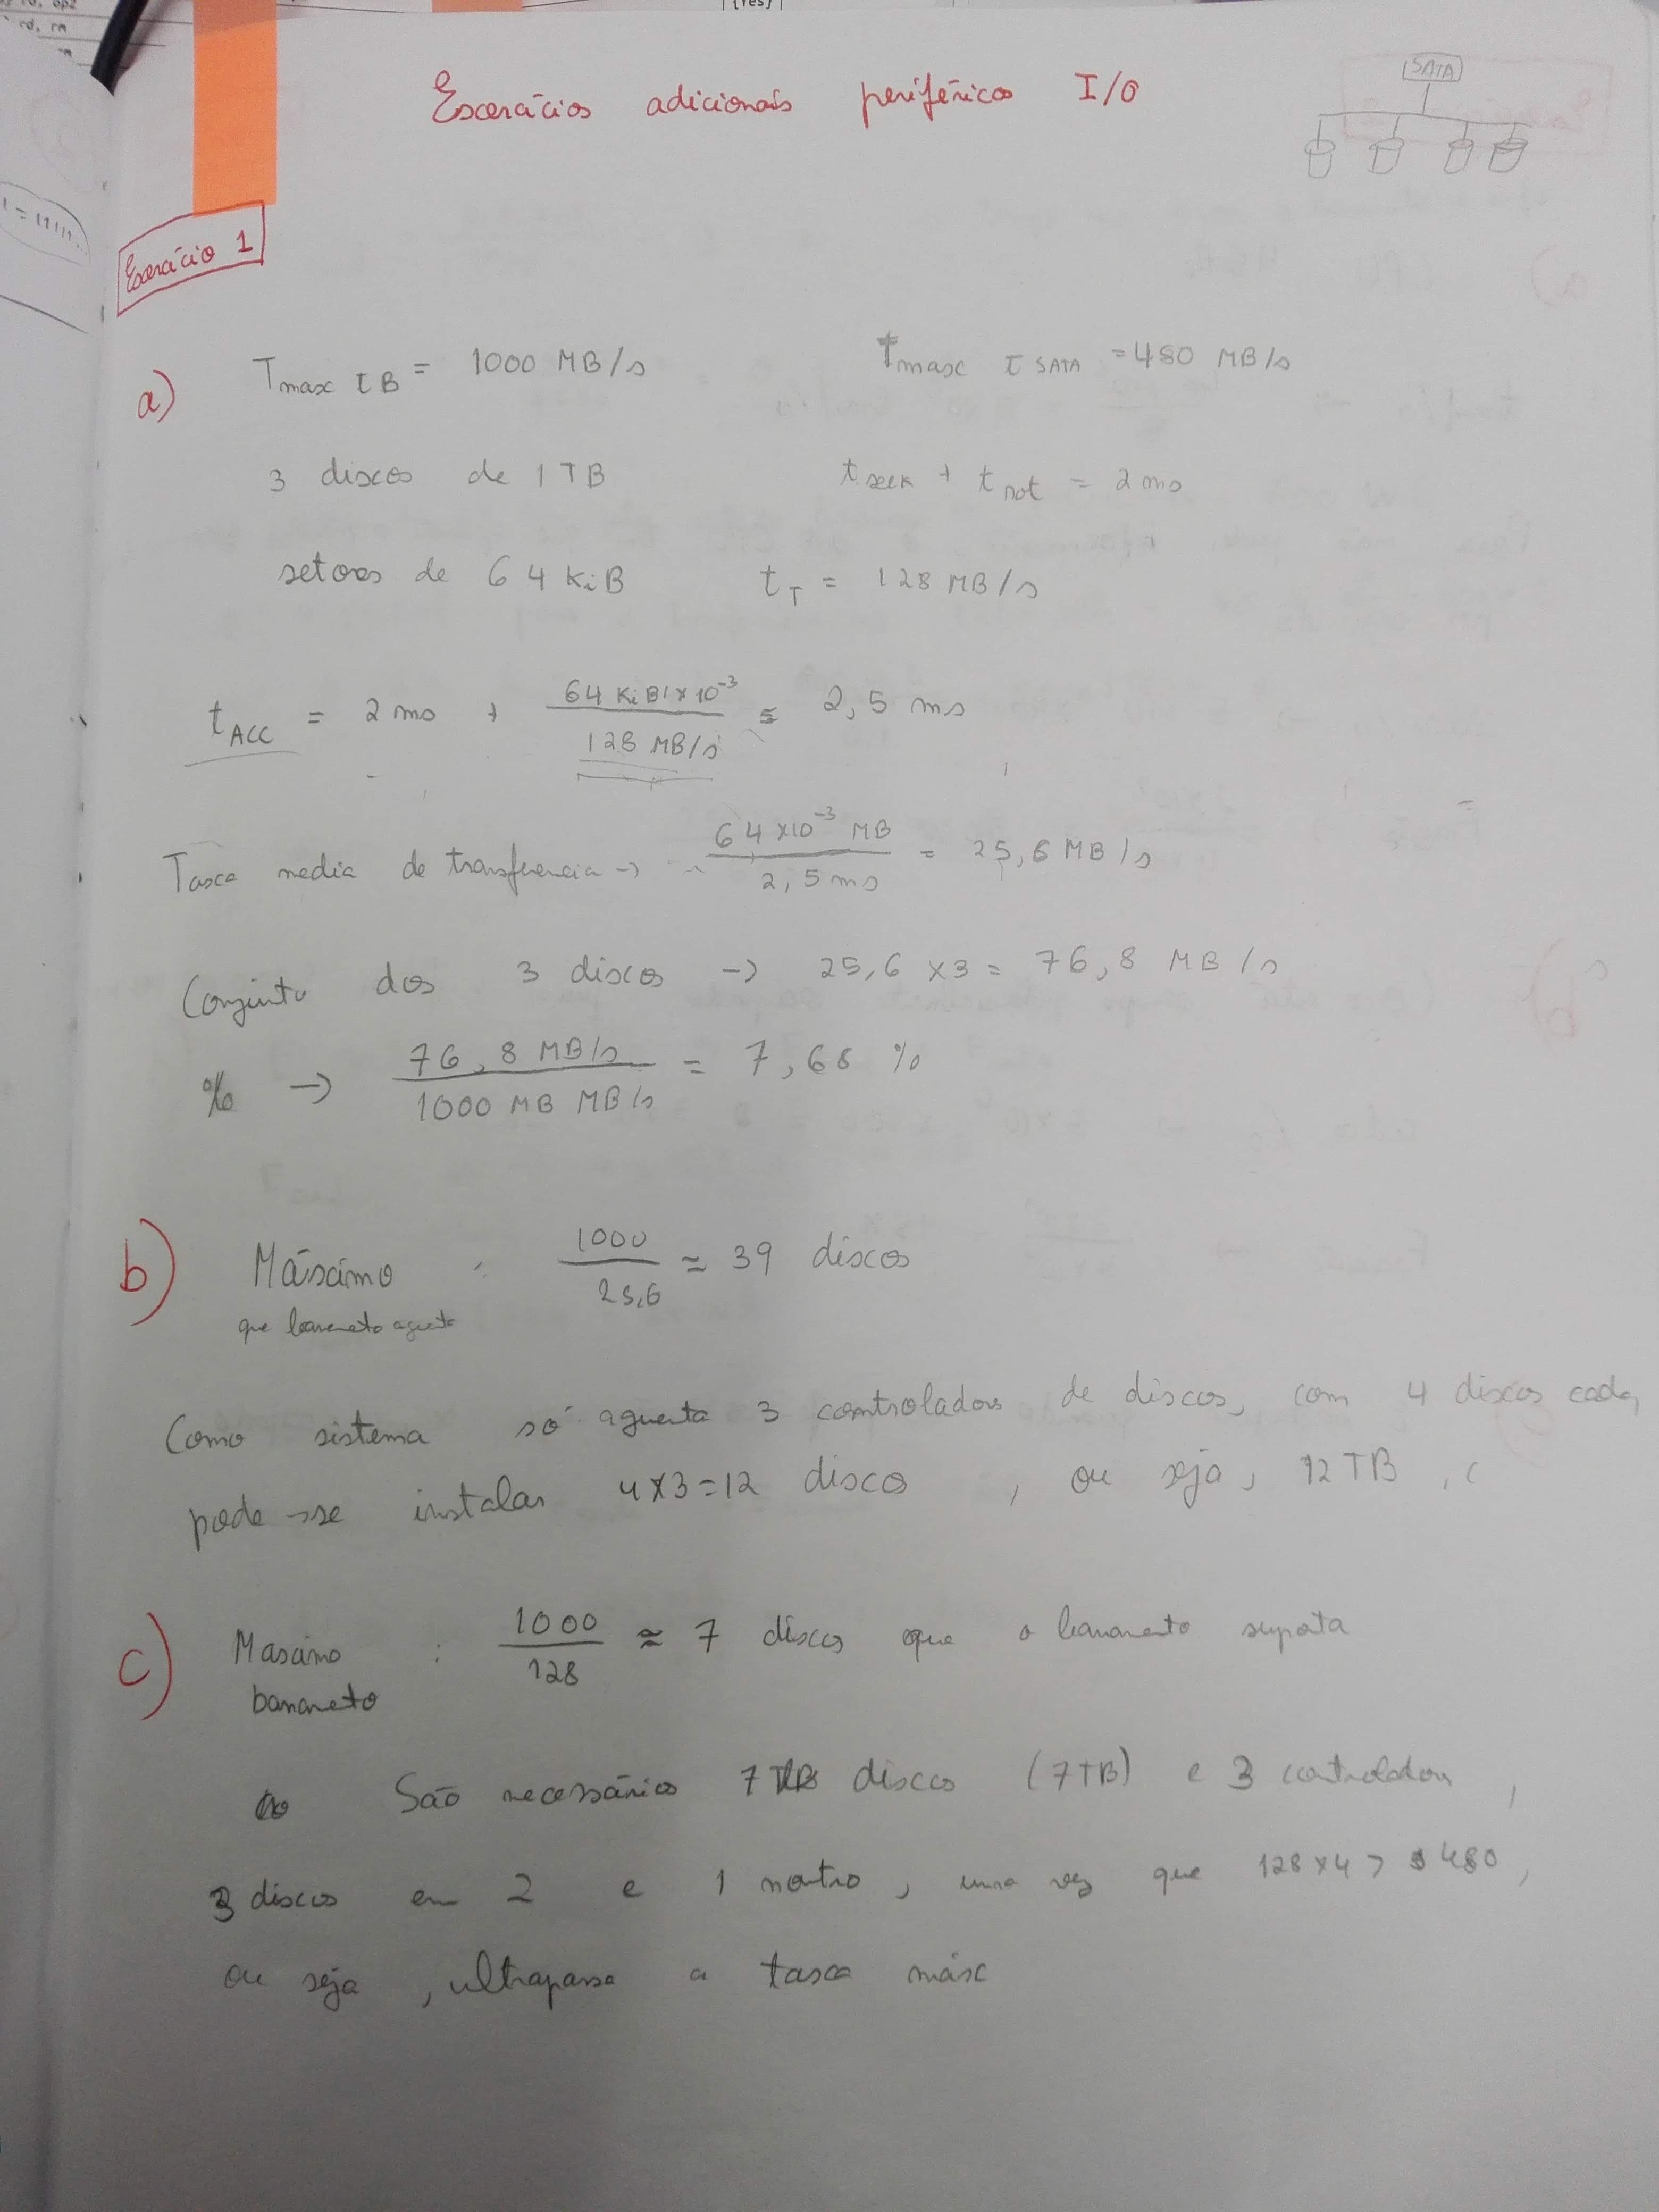 Exercícios adicionais periféricos I/O
SATA
Exercício 1
a)
Tmax TB = 1000 MB/s
Tmax T SATA = 480 MB/s
3 discos de 1 TB
t seek + t rot = 2 ms
setores de 64 KiB
tT = 128 MB/s
tACC = 2 ms + 64 KiB × 10⁻³ / 128 MB/s = 2,5 ms
Taxa media de transferencia → 64 × 10⁻³ MB / 2,5 ms = 25,6 MB/s
Conjunto dos 3 discos → 25,6 × 3 = 76,8 MB/s
% → 76,8 MB/s / 1000 MB MB/s = 7,68 %
b)
Máximo : 1000 / 25,6 ≈ 39 discos
que barramento aguenta
Como sistema só aguenta 3 controladores de discos, com 4 discos cada,
pode-se instalar 4×3=12 discos, ou seja, 12 TB,
c)
Maximo : 1000 / 128 ≈ 7 discos que o barramento suporta
São necessários 7 discos (7TB) e 3 controladores,
3 discos em 2 e 1 noutro, uma vez que 128×4 > 480,
ou seja, ultrapassa a taxa máx